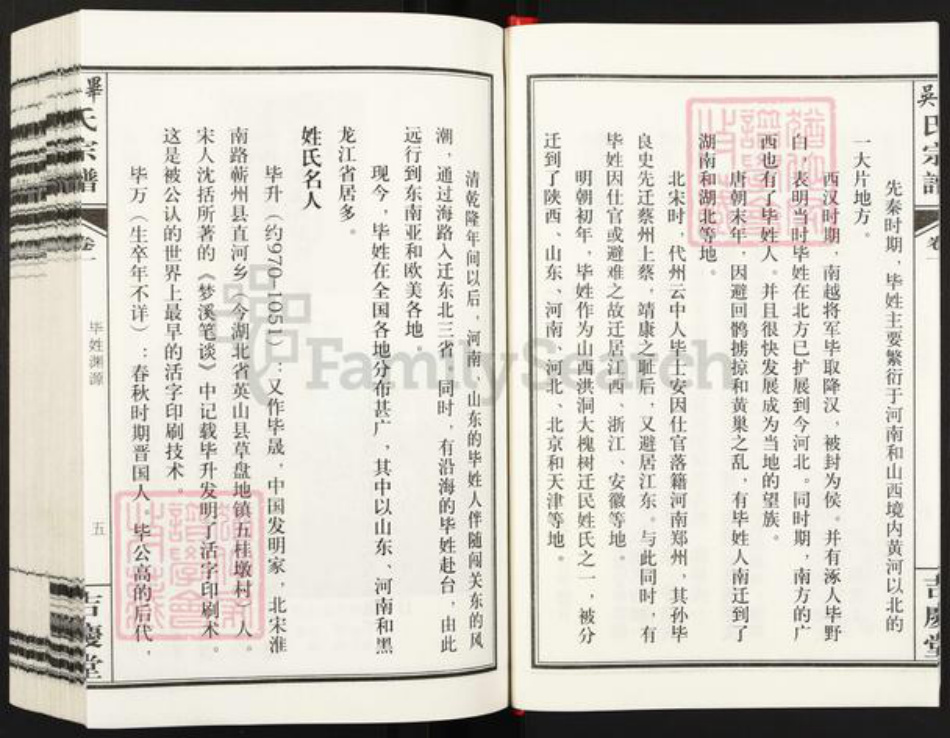 吴氏宗谱
卷一
吉慶堂
先秦时期，毕姓主要繁衍于河南和山西境内黄河以北的
一大片地方。
西汉时期，南越将军毕取降汉，被封为侯。并有涿人毕野
白，表明当时毕姓在北方已扩展到今河北。同时期，南方的广
西也有了毕姓人。并且很快发展成为当地的望族。
唐朝末年，因避回鹘掳掠和黄巢之乱，有毕姓人南迁到了
湖南和湖北等地。
北宋时，代州云中人毕士安因仕官落籍河南郑州，其孙毕
良史先迁蔡州上蔡，靖康之耻后，又避居江东。与此同时，有
毕姓因仕官或避难之故迁居江西、浙江、安徽等地。
明朝初年，毕姓作为山西洪洞大槐树迁民姓氏之一，被分
迁到了陕西、山东、河南、河北、北京和天津等地。
清乾隆年间以后，河南、山东的毕姓人伴随闯关东的风
潮，通过海路入迁东北三省。同时，有沿海的毕姓赴台，由此
远行到东南亚和欧美各地。
现今，毕姓在全国各地分布甚广，其中以山东、河南和黑
龙江省居多。
姓氏名人
毕升（约970-1051）：又作毕晟，中国发明家，北宋淮
南路蕲州县直河乡（今湖北省英山县草盘地镇五桂墩村）人。
宋人沈括所著的《梦溪笔谈》中记载毕升发明了活字印刷术。
这是被公认的世界上最早的活字印刷技术。
毕万（生卒年不详）：春秋时期晋国人。毕公高的后代，
畢氏宗譜
卷一
毕姓渊源
五
吉慶堂
FamilySearch